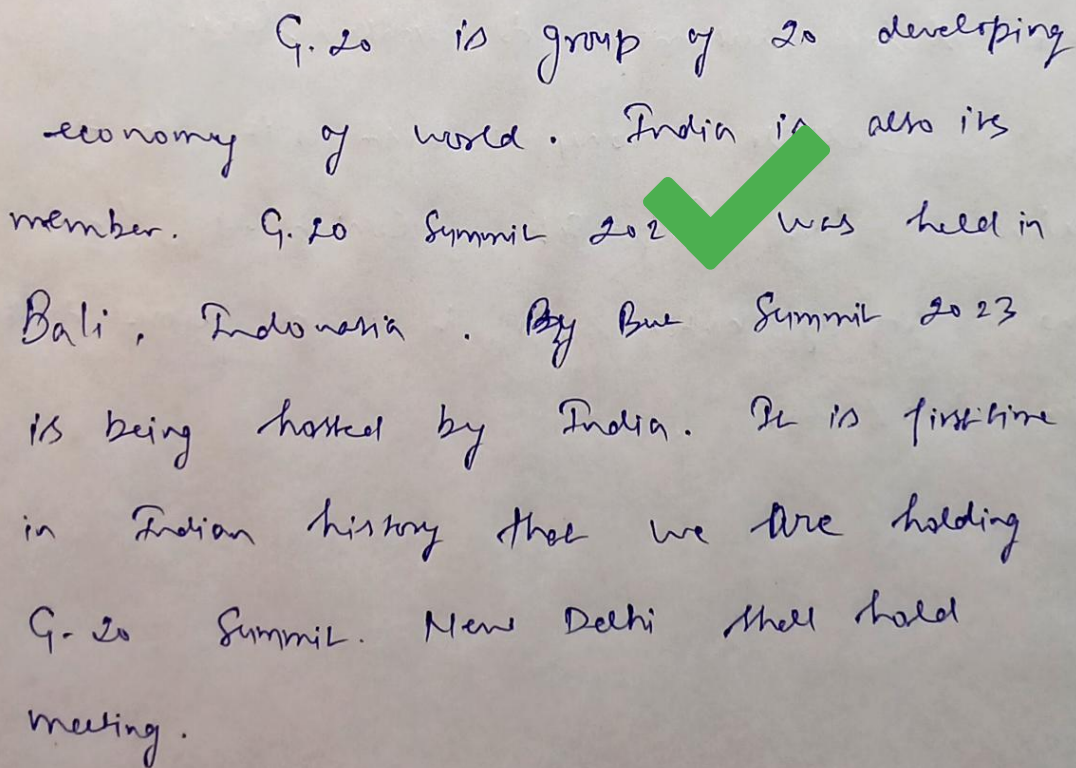 G.20 is group of 20 developing
economy of world. India is also its
member. G.20 Summit was held in
Bali, Indonasia. By But Summit 2023
is being hosted by India. It is first time
in Indian history that we are holding
G-20 Summit. New Delhi shall hold
meeting.